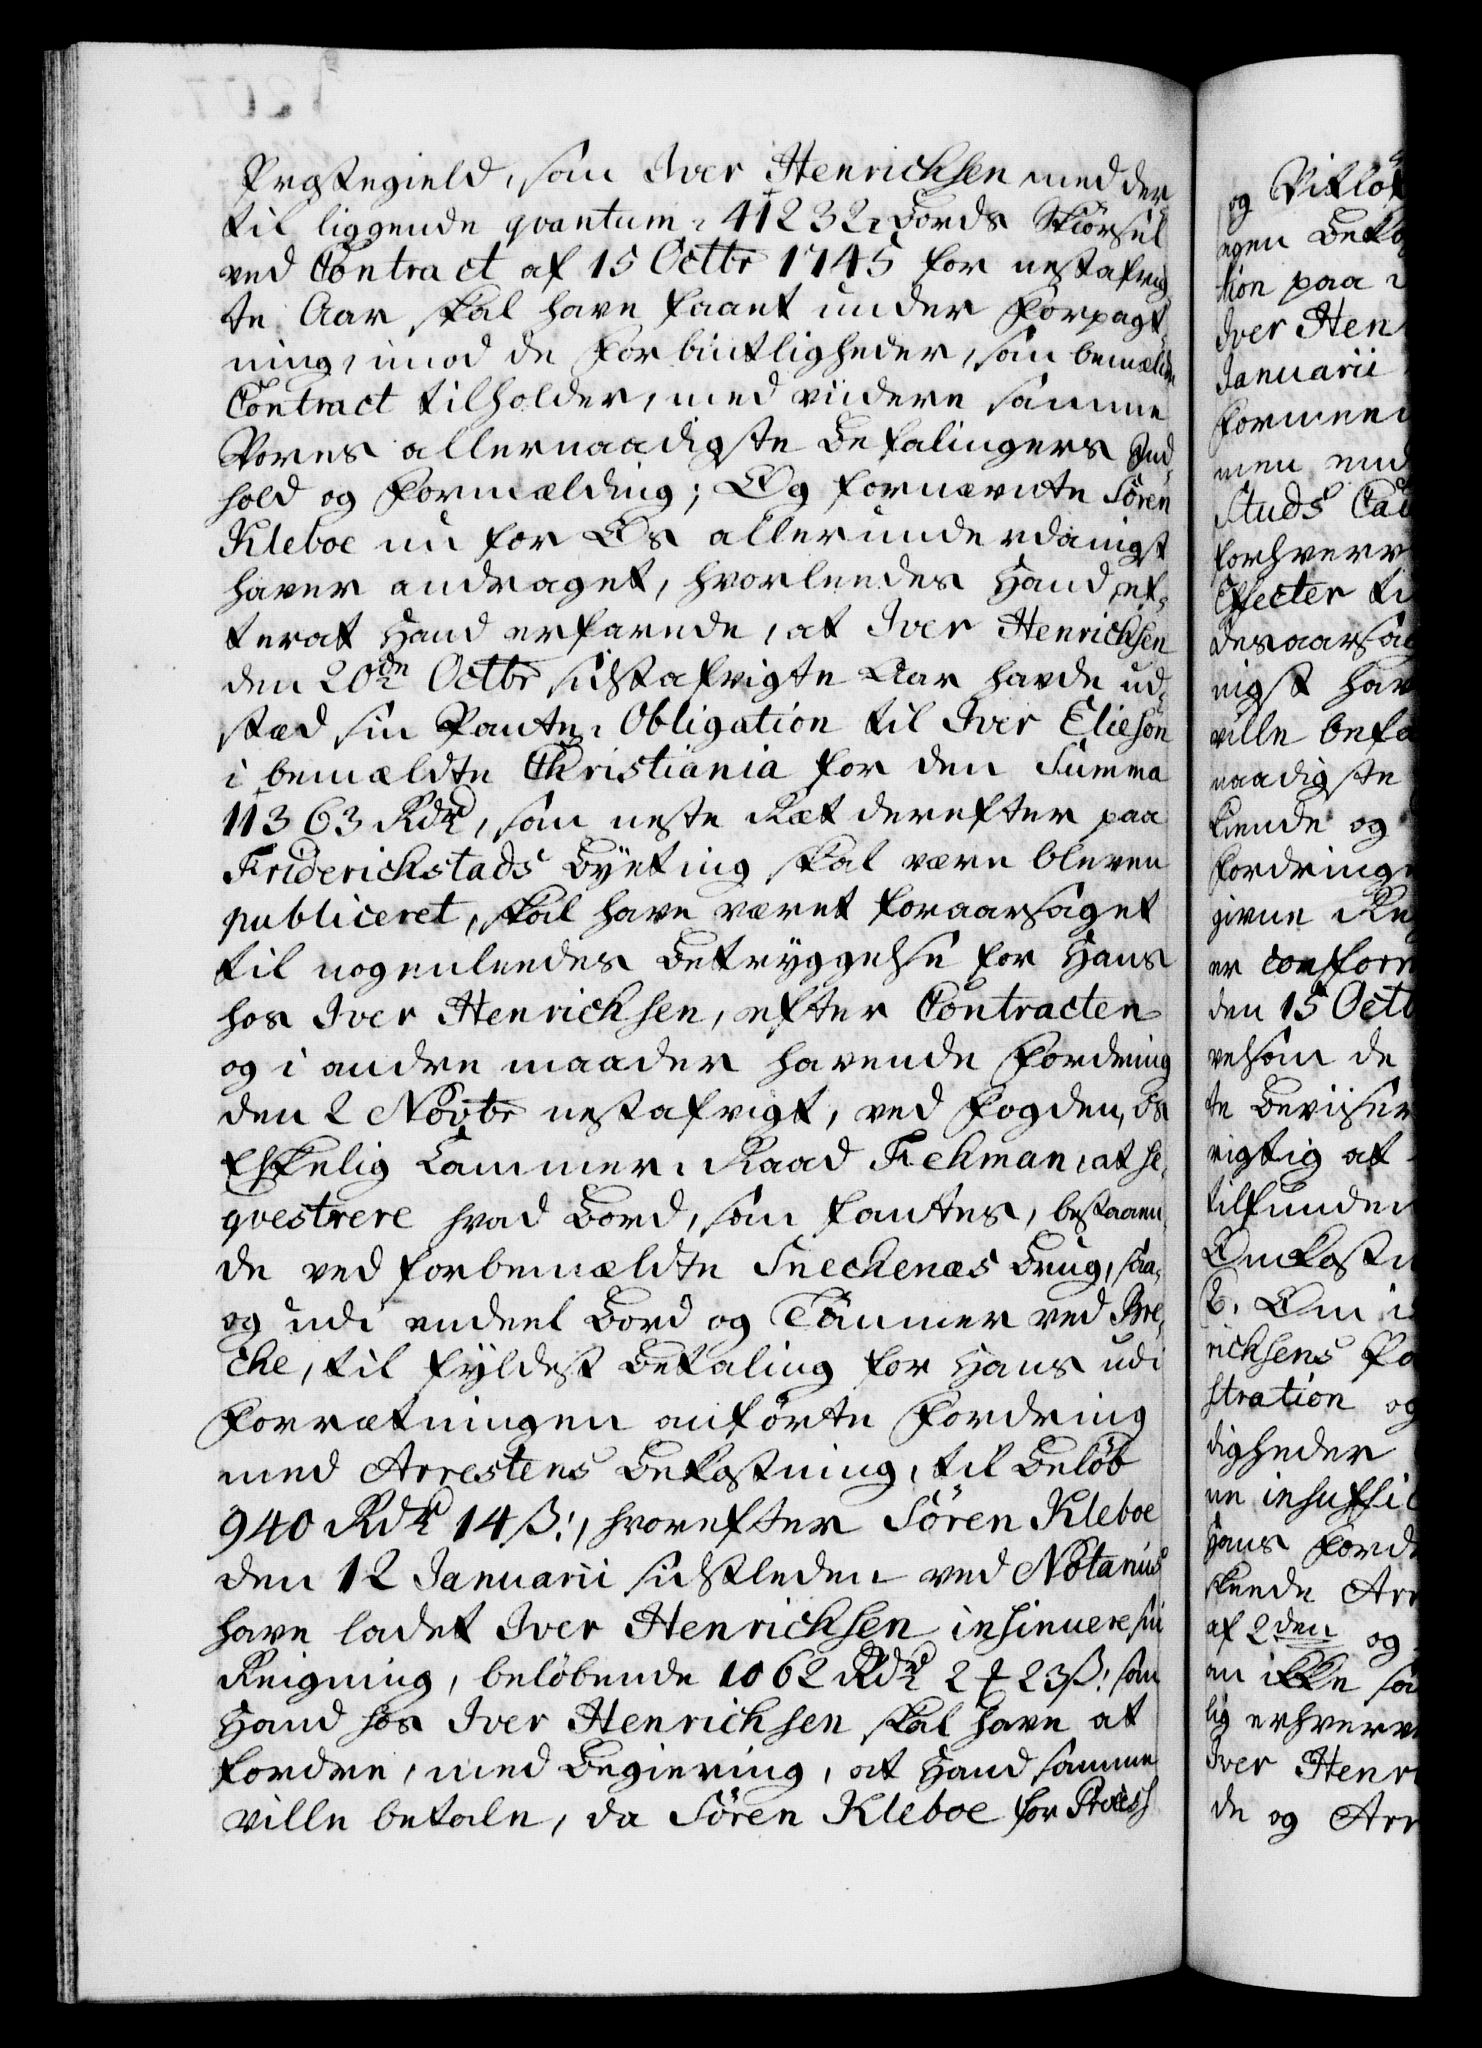 Præstegield, som Iver Henrichsen med der,
til liggende qvantum 41232 Bords Skiørsel
ved Contract af 15 Octbr 1745 for nestafvig,
te Aar skal have faaet under Forpagt,
ning, imod de Forbintligheder, som bemælte
Contract tilholder, med viidere samme
Vores allernaadigste Befalingers Ind,
hold og Formælding; Og fornævnte Sören
Kleboe nu for Os allerunderdanigst
haver andraget, hvorleedes Hand, ef,
terat Hand erfarede, at Iver Henrichsen
den 20de Octbr sidstafvigte Aar havde ud,
stæd sin Pante-Obligation til Iver Elieson
i bemældte Christiania for den Summa
11363 Rdr, som neste Ræt derefter paa
Friderichstads Byeting skal være bleven
publiceret, skal have været foraarsaget
til nogenleedes Betryggelse for Hans
hos Iver Henrichsen, efter Contracten
og i andre maader havende Fordring
den 2 Novbr nestafvigt, ved Fogden, Os
Elskelig Cammer-Raad Fekman, at se,
qvestrere hvad Bord, som fantes, bestaaen,
de ved forbemældte Snechenæs Brug, saa,
og udi endeel Bord og Tömmer ved Bre,
che, til fyldest Betaling for Hans udi
Forrætningen anförte Fordring
med Arrestens Bekostning, til Belöb
940 Rdr 14 ß, hvorefter Sören Kleboe
den 12 Januarii sidstleden ved Notarius
have ladet Iver Henrichsen insinuere sin
Reigning, beløbende 1062 Rdr 2 ꝶ 23 ß, som
Hand hos Iver Henrichsen skal have at
fordre, med Begiering, at Hand samme
ville betale, da Sören Kleboe for Process
og Vitlöf
egen Beko
tion paa
Iver Hen
Januarii
Formeen
men end
Studs Ca
forhverv
Effecter ti
desaarsag
nigst hav
ville befa
naadigste
kiende og
Fordring
givne Re
er conform
den 15 Octb
velsom de
te Beviiser
rigtig at
tilfunden
Omkostn
2. Om i
richsens Fo
stration og
digheder
ne insuffi
Hans Ford
skeede Arr
af 2den og
om ikke saa
lig erhverv
Iver Henri
de og Arr